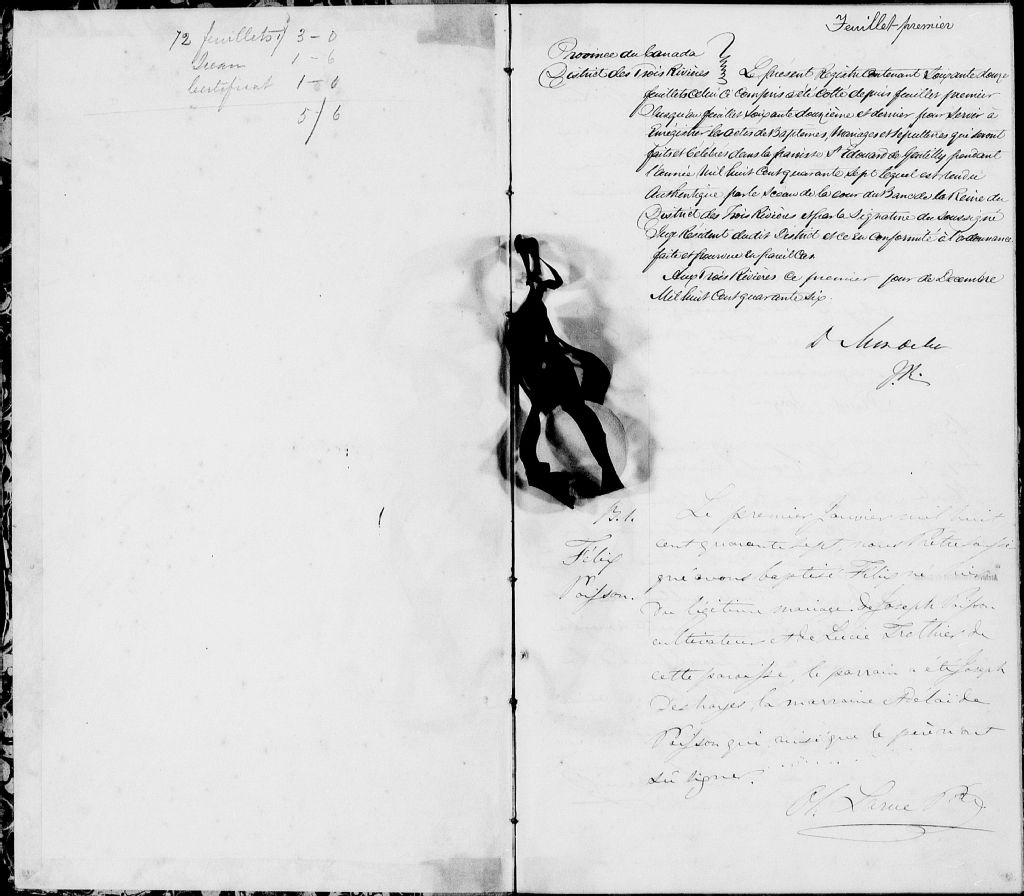 72 feuillets 3 - 0
Sceau 1 - 6
Certificat 1 - 0
5/6
Feuillet premier
Province du Canada
District des Trois Rivières
Le présent Registre contenant Soixante douze
feuillets celui ci compris a été cotté depuis feuillet premier
Jusqu'au feuillet soixante douzième et dernier pour servir à
Enrégistrer les actes de Baptêmes, Mariages et sépultures qui seront
faits et célébrés dans la Paroisse St. Edouard de Gentilly pendant
l'année Mil huit Cent quarante sept lequel est rendu
Authentique par le sceau de la cour du Banc de la Reine du
District des Trois Rivières et par la Signature du Soussigné
Juge Résident dudit District et ce en conformité à l'ordonnance
faite et pourvue en pareil Cas
Aux Trois Rivières ce premier jour de Decembre
Mil huit Cent quarante six.
D Mondelet
J.R.
B. 1.
Félix
Poisson.
Le premier Janvier mil huit
cent quarante sept, nous Prêtre soussi
gné avons baptisé Félix né hier
du légitime mariage de Joseph Poisson
cultivateur et de Lucie Trothier de
cette paroisse, le parrain a été Joseph
Deshayes, la marraine Adelaïde
Poisson qui ainsi que le père n'ont
sû signer.
Larue Ptre